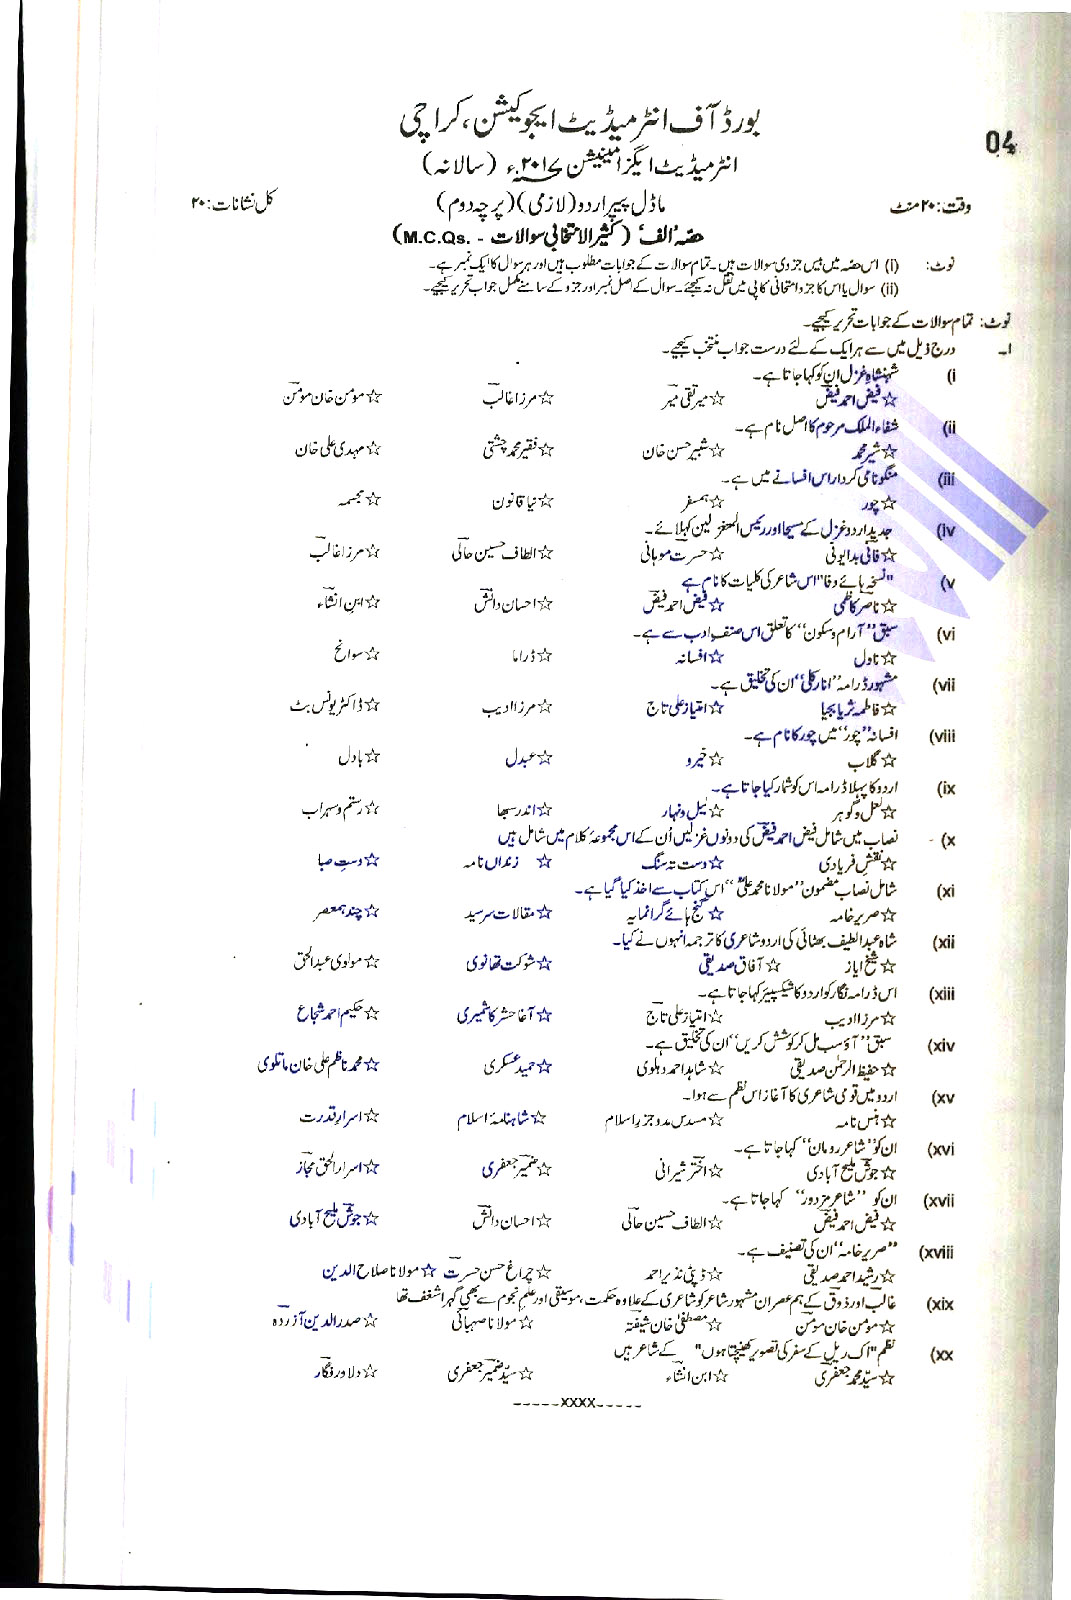 بورڈ آف انٹرمیڈیٹ ایجوکیشن، کراچی
04
انٹرمیڈیٹ ایگزامینیشن ۲۰۱۷ء (سالانہ)
وقت: ۲۰ منٹ ماڈل پیپر اردو (لازمی) (پرچہ دوم) کل نشانات: ۲۰
حصّہ 'الف' (کثیر الانتخابی سوالات - M.C.Qs.)
نوٹ: (i) اس حصّہ میں بیس جزوی سوالات ہیں۔ تمام سوالات کے جوابات مطلوب ہیں اور ہر سوال کا ایک نمبر ہے۔
(ii) سوال یا اس کا جزو امتحانی کاپی میں نقل نہ کیجئے۔ سوال کے اصل نمبر اور جزو کے سامنے مکمل جواب تحریر کیجیے۔
نوٹ: تمام سوالات کے جوابات تحریر کیجیے۔
۱۔ درج ذیل میں سے ہر ایک کے لئے درست جواب منتخب کیجیے۔
(i شہنشاہِ غزل ان کو کہا جاتا ہے۔
☆ فیض احمد فیضؔ ☆ میر تقی میر ☆ مرزا غالبؔ ☆ مومن خان مومنؔ
(ii شفاء الملک مرحوم کا اصل نام ہے۔
☆ شیر محمد ☆ شبیر حسن خان ☆ فقیر محمد چشتی ☆ مہدی علی خان
(iii منگو نامی کردار اس افسانے میں ہے۔
☆ چور ☆ ہمسفر ☆ نیا قانون ☆ مجسمہ
(iv جدید اردو غزل کے مسیحا اور رئیس المتغزلین کہلائے۔
☆ فانی بدایونی ☆ حسرت موہانی ☆ الطاف حسین حالی ☆ مرزا غالبؔ
(v "نسخہ ہائے وفا" اس شاعر کی کلیات کا نام ہے
☆ ناصر کاظمی ☆ فیض احمد فیضؔ ☆ احسان دانشؔ ☆ ابنِ انشاء
(vi سبق "آرام و سکون" کا تعلق اس صنفِ ادب سے ہے۔
☆ ناول ☆ افسانہ ☆ ڈراما ☆ سوانح
(vii مشہور ڈرامہ "انارکلی" ان کی تخلیق ہے۔
☆ فاطمہ ثریا بجیا ☆ امتیاز علی تاج ☆ مرزا ادیب ☆ ڈاکٹر یونس بٹ
(viii افسانہ "چور" میں چور کا نام ہے۔
☆ گلاب ☆ خیرو ☆ عبدل ☆ بادل
(ix اردو کا پہلا ڈرامہ اس کو شمار کیا جاتا ہے۔
☆ لعل و گوہر ☆ لیل و نہار ☆ اندر سبھا ☆ رستم و سہراب
(x نصاب میں شامل فیض احمد فیضؔ کی دونوں غزلیں اُن کے اس مجموعہ کلام میں شامل ہیں
☆ نقشِ فریادی ☆ دست تہ سنگ ☆ زنداں نامہ ☆ دستِ صبا
(xi شاملِ نصاب مضمون "مولانا محمد علیؒ" اس کتاب سے اخذ کیا گیا ہے۔
☆ صریرِ خامہ ☆ گنج ہائے گرانمایہ ☆ مقالات سرسید ☆ چند ہمعصر
(xii شاہ عبد الطیف بھٹائی کی اردو شاعری کا ترجمہ انہوں نے کیا۔
☆ شیخ ایاز ☆ آفاق صدیقی ☆ شوکت تھانوی ☆ مولوی عبدالحق
(xiii اس ڈرامہ نگار کو اردو کا شیکسپیئر کہا جاتا ہے۔
☆ مرزا ادیب ☆ امتیاز علی تاج ☆ آغا حشر کاشمیری ☆ حکیم احمد شجاع
(xiv سبق "آؤ سب مل کر کوشش کریں" ان کی تخلیق ہے۔
☆ حفیظ الرحمٰن صدیقی ☆ شاہد احمد دہلوی ☆ حمید عسکری ☆ محمد ناظم علی خان ماتلوی
(xv اردو میں قومی شاعری کا آغاز اس نظم سے ہوا۔
☆ ہنس نامہ ☆ مسدس مدو جزر اسلام ☆ شاہنامۂ اسلام ☆ اسرارِ قدرت
(xvi ان کو "شاعرِ رومان" کہا جاتا ہے۔
☆ جوشؔ ملیح آبادی ☆ اختر شیرانی ☆ ضمیر جعفری ☆ اسرار الحق مجازؔ
(xvii ان کو "شاعرِ مزدور" کہا جاتا ہے۔
☆ فیض احمد فیضؔ ☆ الطاف حسین حالی ☆ احسان دانشؔ ☆ جوشؔ ملیح آبادی
(xviii "صریرِ خامہ" ان کی تصنیف ہے۔
☆ رشید احمد صدیقی ☆ ڈپٹی نذیر احمد ☆ چراغ حسن حسرتؔ ☆ مولانا صلاح الدین
(xix غالب اور ذوق کے ہم عصر ان مشہور شاعر کو شاعری کے علاوہ حکمت، موسیقی اور علمِ نجوم سے بھی گہرا شغف تھا
☆ مومن خان مومنؔ ☆ مصطفیٰ خان شیفتہؔ ☆ مولانا صہبائی ☆ صدر الدین آزردہ
(xx نظم "اک ریل کے سفر کی تصویر کھینچتا ہوں" کے شاعر ہیں
☆ سیّد محمد جعفری ☆ ابن انشاء ☆ سیّد ضمیر جعفری ☆ دلاور فگارؔ
-----XXXX-----